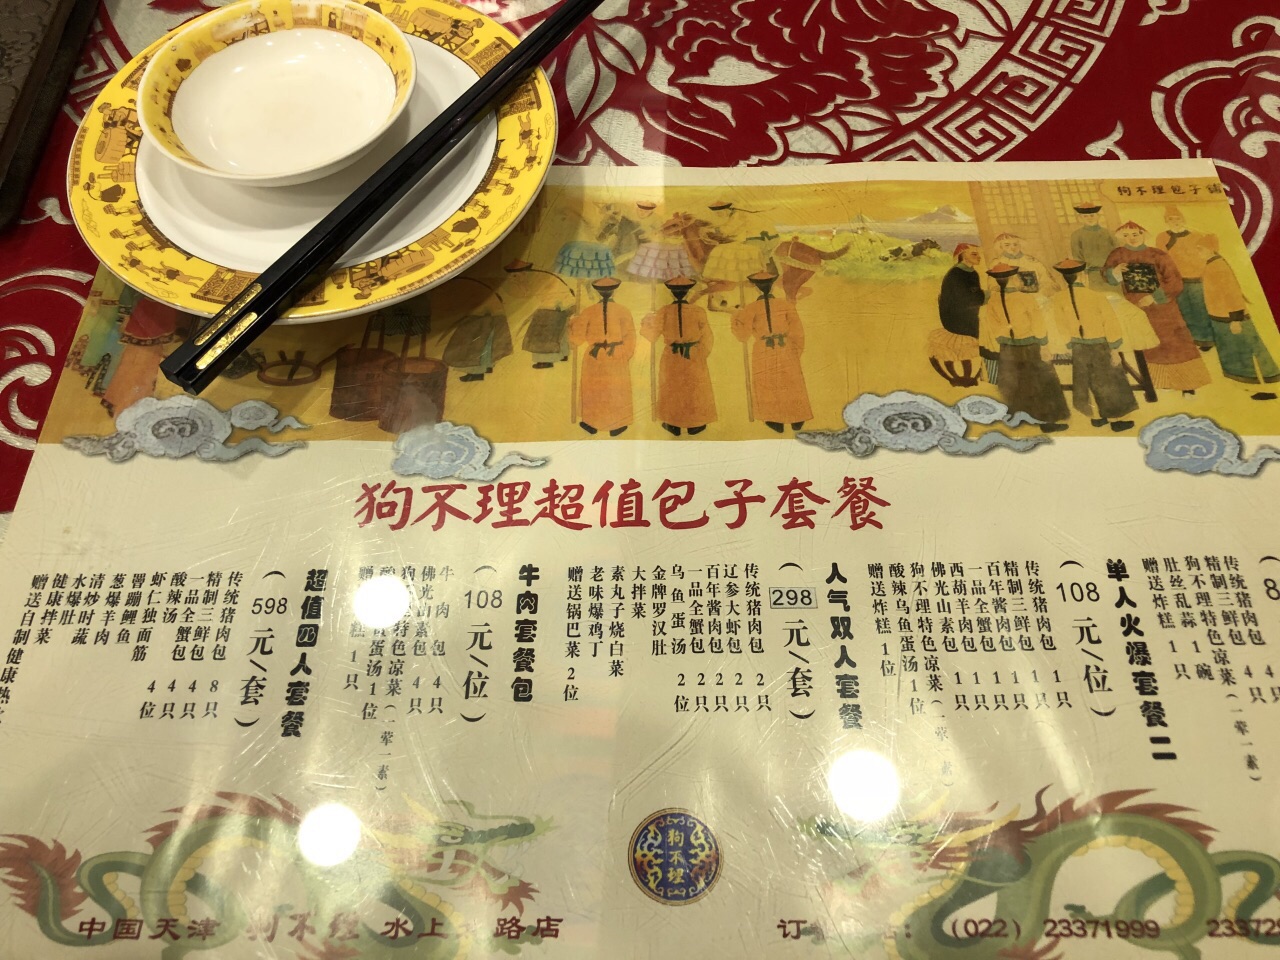 狗不理包子铺
狗不理超值包子套餐
8
传统猪肉包 4只
精制三鲜包 4只
狗不理特色凉菜(一荤一素)
肚丝乱蒜 1碗
赠送炸糕 1只
单人火爆套餐二
(108元/位)
传统猪肉包 1只
精制三鲜包 1只
百年酱肉包 1只
一品全蟹包 1只
西葫羊肉包 1只
佛光山素包 1只
狗不理特色凉菜(一荤一素)
酸辣乌鱼蛋汤 1位
赠送炸糕 1位
人气双人套餐
(298元/套)
传统猪肉包 2只
辽参大虾包 2只
百年酱肉包 2只
一品全蟹包 2只
乌鱼蛋汤 2位
金牌罗汉肚
大拌菜
素丸子烧白菜
老味爆鸡丁
赠送锅巴菜 2位
牛肉套餐包
(108元/位)
牛肉包 4只
佛光山素包 4只
狗特色凉菜(一荤一素)
蛋汤 1位
赠糕 1只
超值四人套餐
(598元/套)
传统猪肉包 8只
精制三鲜包 4只
一品全蟹包 4只
酸辣汤 4位
虾仁独面筋
罾蹦鲤鱼
葱爆羊肉
清炒时蔬
水爆肚
健康拌菜
赠送自制健康热
狗不理
中国天津 狗不理 水上 路店
订 电话:(022) 23371999 233729